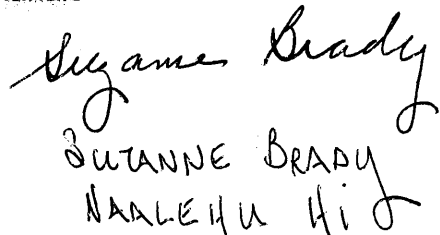 Suzanne Brady
SUZANNE BRADY
NAALEHU Hi